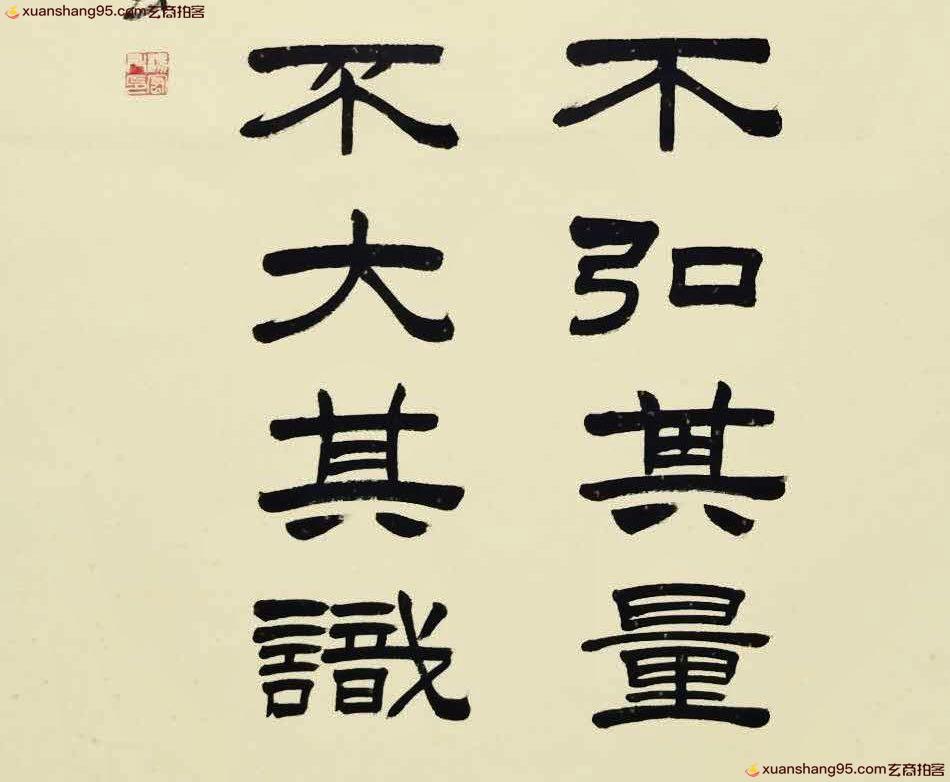 xuanshang95.com玄商拍客
不弘其量
不大其識
xuanshang95.com玄商拍客